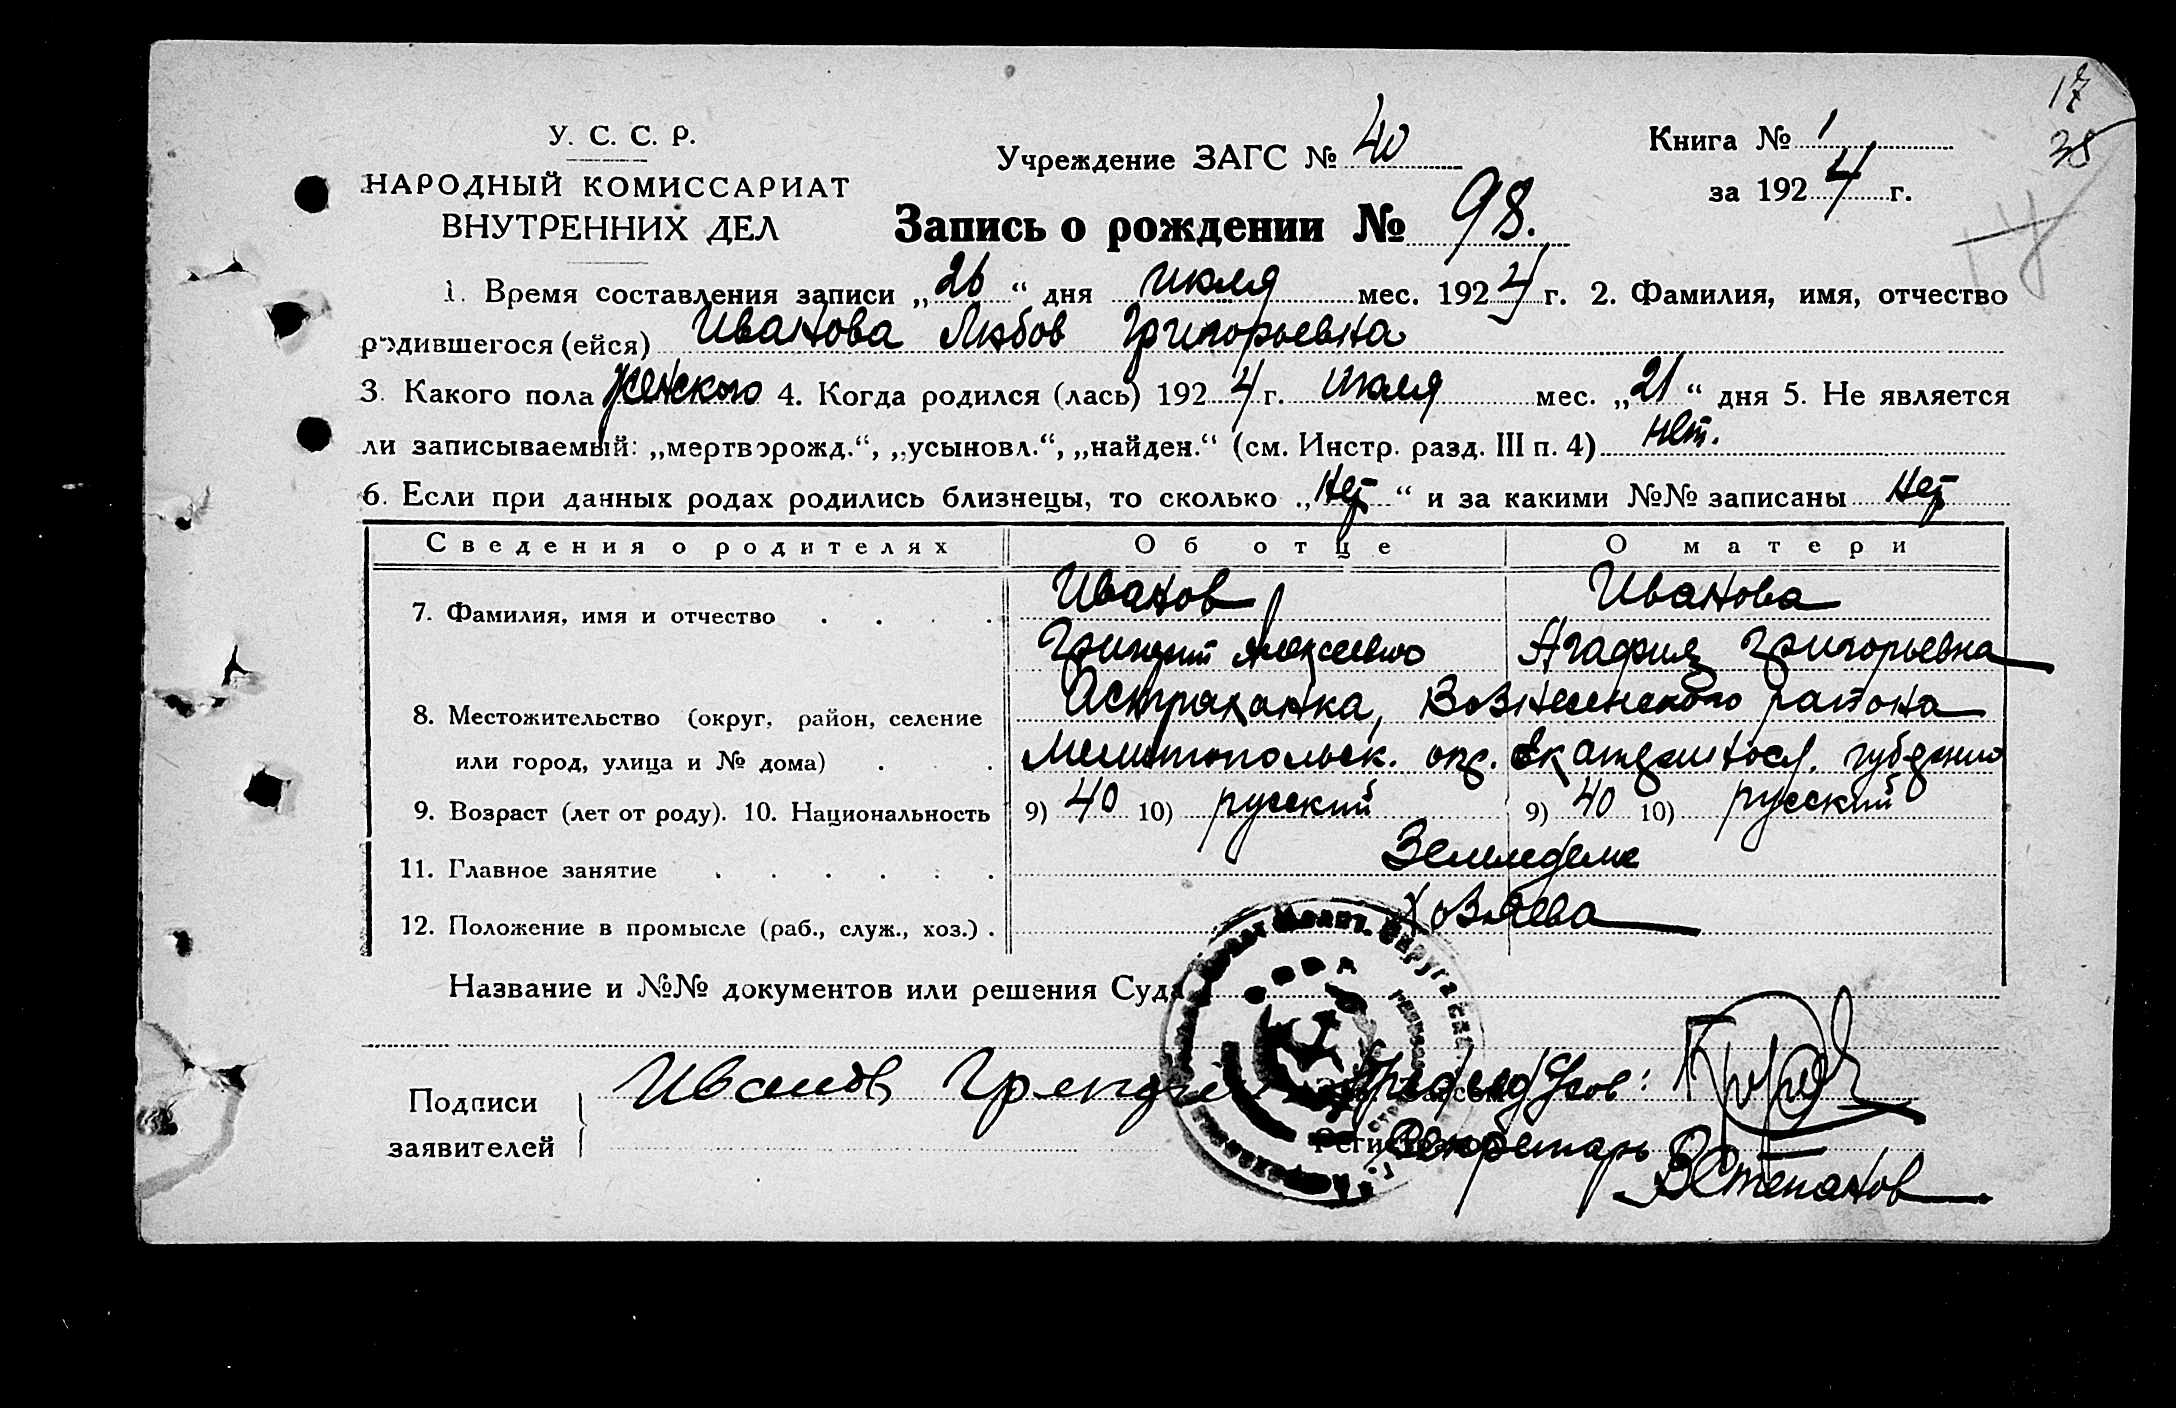 17
38
У. С. С. Р.
НАРОДНЫЙ КОМИССАРИАТ
ВНУТРЕННИХ ДЕЛ
Учреждение ЗАГС № 40
Книга № 1
за 1924 г.
Запись о рождении № 98.
1. Время составления записи „26“ дня июля мес. 1924 г. 2. Фамилия, имя, отчество
родившегося (ейся) Иванова Любов Григорьевна
3. Какого пола женского 4. Когда родился (лась) 1924 г. июля мес. „21“ дня 5. Не является
ли записываемый: „мертворожд.“, „усыновл.“, „найден.“ (см. Инстр. разд. III п. 4) нет.
6. Если при данных родах родились близнецы, то сколько „нет“ и за какими №№ записаны нет
Сведения о родителях Об отце О матери
7. Фамилия, имя и отчество . . . . Иванов Иванова
Григорий Алексеевич Агафия Григорьевна
8. Местожительство (округ, район, селение Астраханка, Вознесенского района
или город, улица и № дома) . . . Мелитопольск. окр. Екатериносл. губернии
9. Возраст (лет от роду). 10. Национальность 9) 40 10) русский 9) 40 10) русский
11. Главное занятие . . . . . . Земледелие
12. Положение в промысле (раб., служ., хоз.) . Хозяева
Название и №№ документов или решения Суда
Подписи
заявителей
Иванов Григорий
Секретарь
ВСтепанов